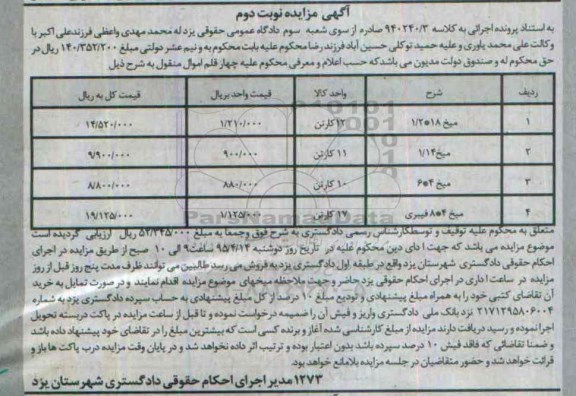 آگهی مزایده نوبت دوم
به استناد پرونده اجرائی به کلاسه ۹۴۰۲۴۰/۳ صادره از سوی شعبه سوم دادگاه عمومی حقوقی یزد له محمد مهدی واعظی فرزند علی اکبر با
وکالت علی محمد یاوری و علیه حمید توکلی حسین آباد فرزند رضا محکوم علیه بابت محکوم به و نیم عشر دولتی مبلغ ۱۴۰/۳۵۲/۲۰۰ ریال در
حق محکوم له و صندوق دولت مدیون می باشد که حسب اعلام و معرفی محکوم علیه چهار قلم اموال منقول به شرح ذیل
ردیف شرح واحد کالا قیمت واحد بریال قیمت کل به ریال
۱ میخ ۱۸*۱/۲ ۱۲ کارتن ۱/۲۱۰/۰۰۰ ۱۴/۵۲۰/۰۰۰
۲ میخ ۱/۱۴ ۱۱ کارتن ۹۰۰/۰۰۰ ۹/۹۰۰/۰۰۰
۳ میخ ۴*۶ ۱۰ کارتن ۸۸۰/۰۰۰ ۸/۸۰۰/۰۰۰
۴ میخ ۴*۸ فیبری ۱۷ کارتن ۱/۱۲۵/۰۰۰ ۱۹/۱۲۵/۰۰۰
متعلق به محکوم علیه توقیف و توسط کارشناس رسمی دادگستری به شرح فوق وجمعا به مبلغ ۵۲/۳۴۵/۰۰۰ ریال ارزیابی گردیده است
موضوع مزایده می باشد که جهت ادای دین محکوم علیه در تاریخ روز دوشنبه ۹۵/۴/۱۴ ساعت ۹ الی ۱۰ صبح از طریق مزایده در اجرای
احکام حقوقی دادگستری شهرستان یزد واقع در طبقه اول دادگستری یزد به فروش می رسد طالبین می توانند ظرف مدت پنج روز قبل از روز
مزایده در ساعت اداری در اجرای احکام حقوقی یزد حاضر و جهت ملاحظه میخهای موضوع مزایده اقدام نمایند و در صورت تمایل به خرید
آن تقاضای کتبی خود را به همراه مبلغ پیشنهادی و تودیع مبلغ ۱۰ درصد از کل مبلغ پیشنهادی به حساب سپرده دادگستری یزد به شماره
۲۱۷۱۲۹۵۸۰۶۰۰۴ نزد بانک ملی دادگستری واریز و فیش آن را ضمیمه درخواست نموده و تا قبل از ساعت مزایده در پاکت دربسته تحویل
اجرا نموده و رسید دریافت دارند مزایده از مبلغ کارشناسی شده آغاز و برنده کسی است که بیشترین مبلغ را در تقاضای خود پیشنهاد داده باشد
و ضمنا تقاضائی که فاقد فیش ۱۰ درصد سپرده باشد بدون اعتبار بوده و ترتیب اثر داده نخواهد شد و در پایان وقت مزایده درب پاکت ها باز و
قرائت خواهد شد و حضور متقاضیان در جلسه مزایده بلامانع خواهد بود.
۱۲۷۳ مدیر اجرای احکام حقوقی دادگستری شهرستان یزد